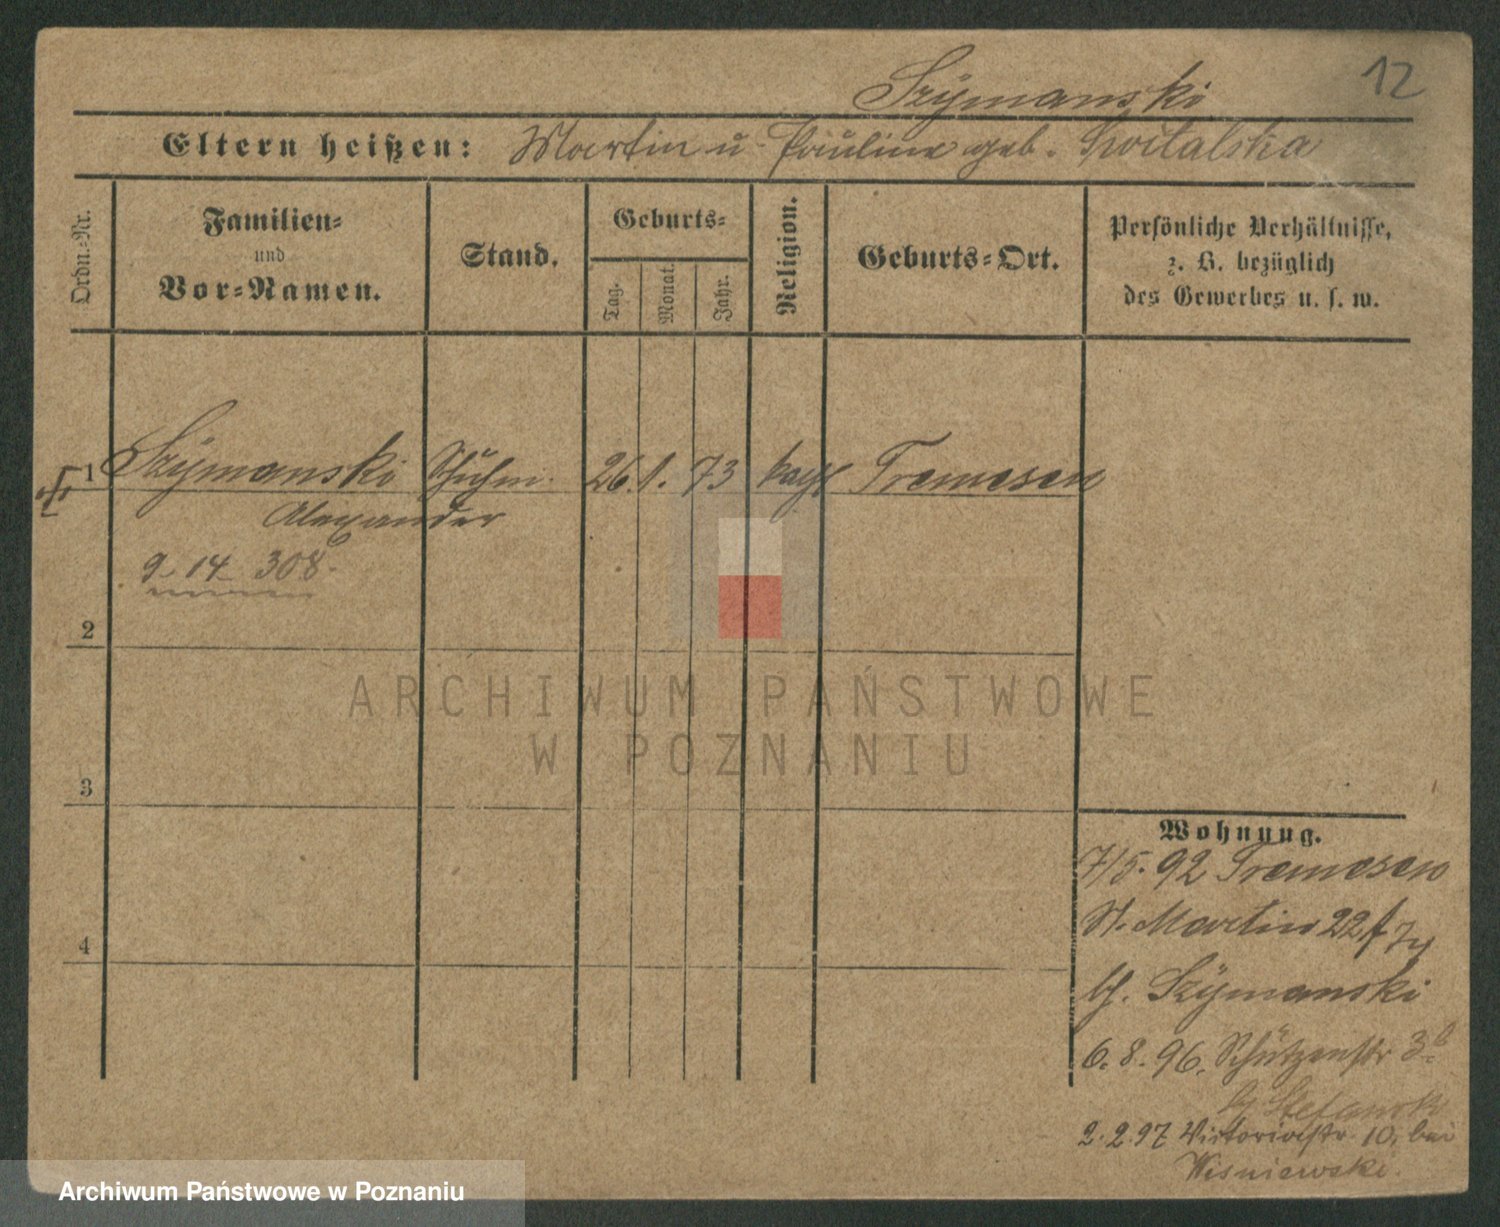 12
Szymanski
Eltern heißen: Martin u. Pauline geb. Switalska
Ordn.=Nr.
Familien=
und
Vor=Namen.
Stand.
Geburts=
Tag.
Monat.
Jahr.
Religion.
Geburts=Ort.
Persönliche Verhältnisse,
z. B. bezüglich
des Gewerbes u. s. w.
1 Szymanski Schuhm. 26. 1. 73 kath Tremessen
Alexander
9-14 308
2
3
4
ARCHIWUM PAŃSTWOWE
W POZNANIU
Wohnung.
7/5. 92 Tremessen
St. Martin 22
bf. Szymanski
6. 8. 96. Schützenstr 3
Stefansk
2. 2. 97 Victoriastr. 10, bei
Wisniewski.
Archiwum Państwowe w Poznaniu